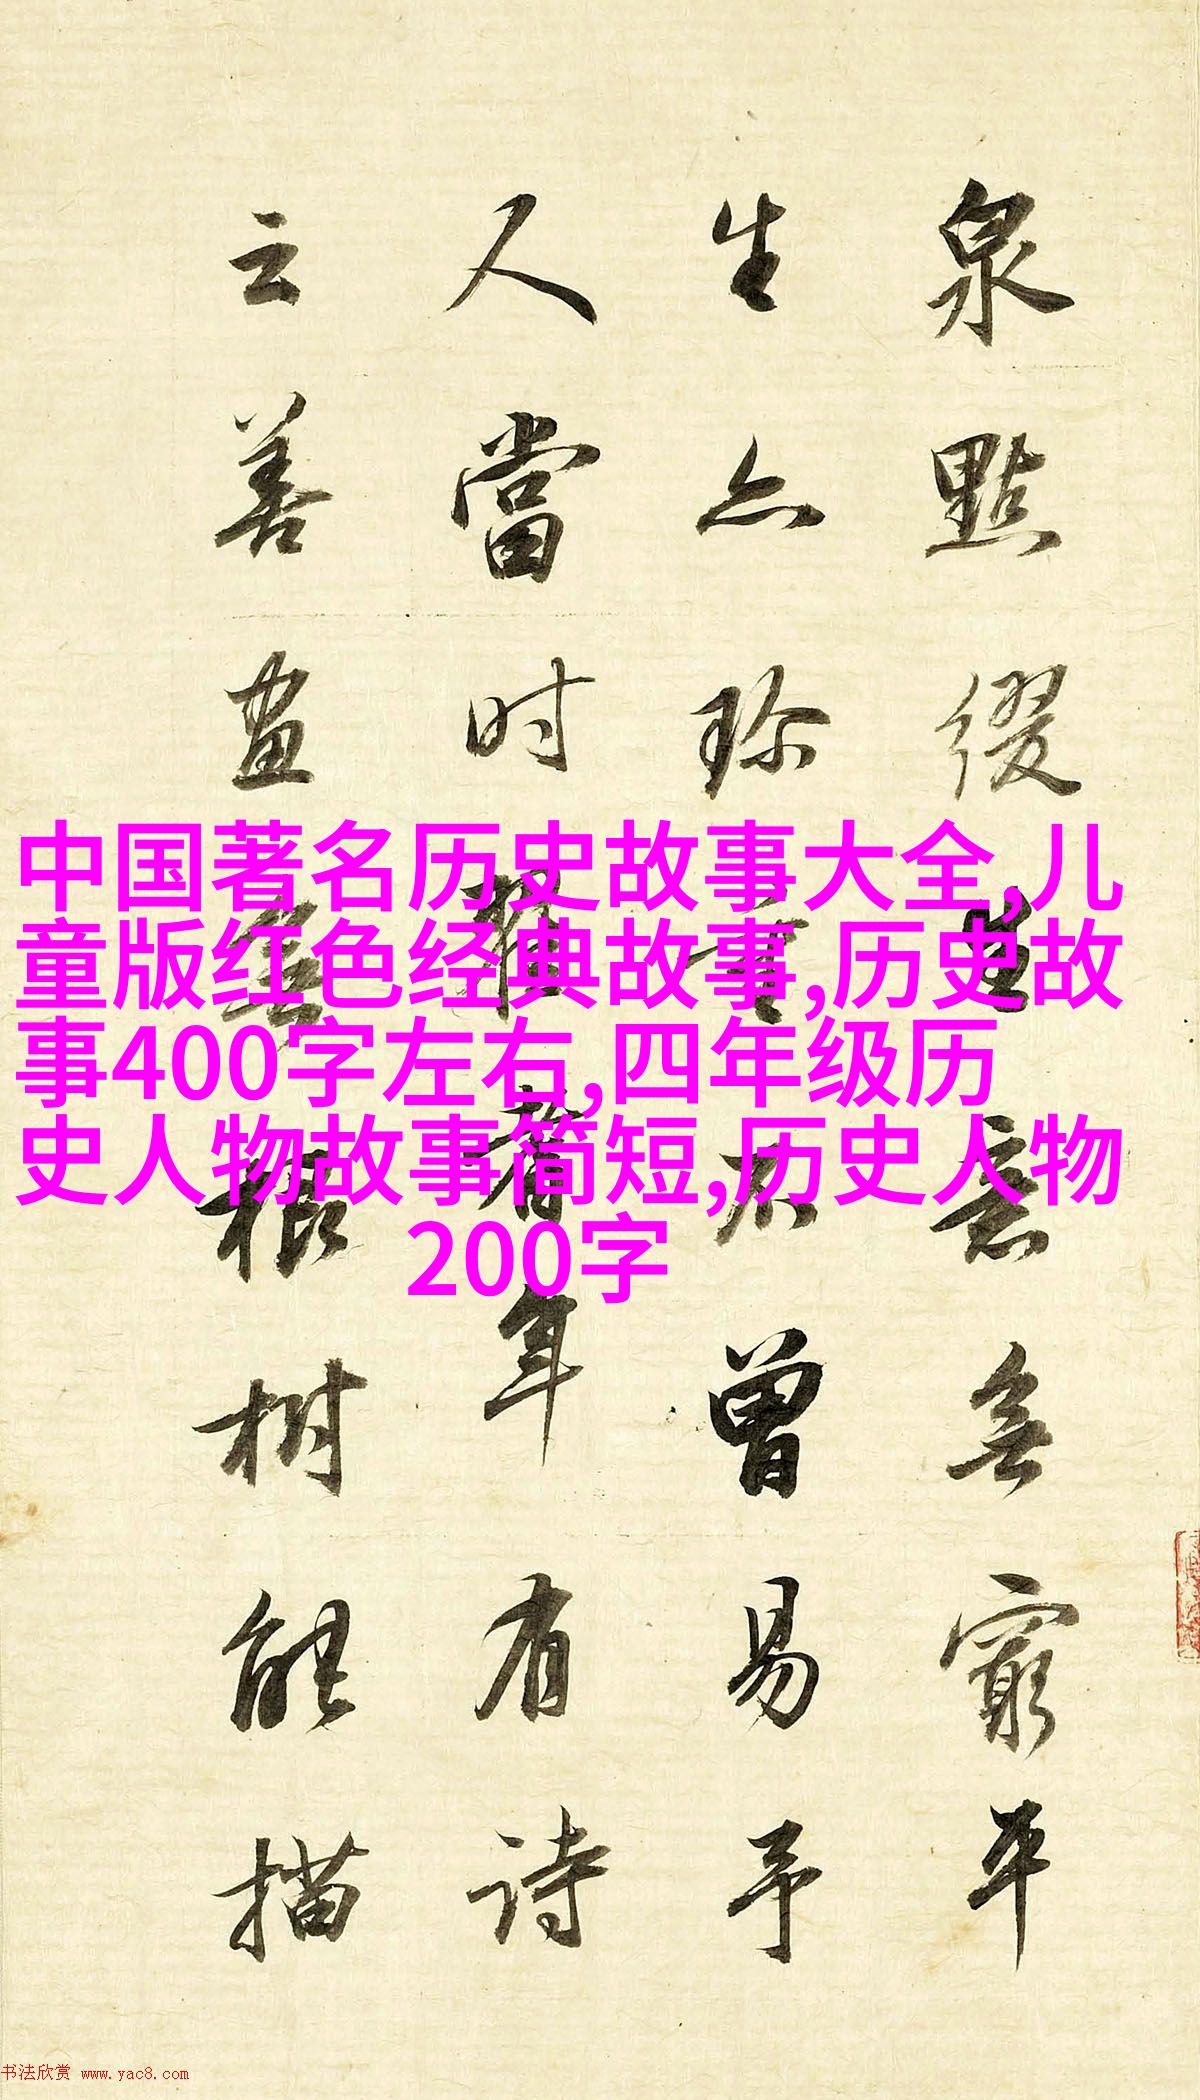 中国著名历史故事大全,儿
童版红色经典故事,历史故
事400字左右,四年级历
史人物故事简短,历史人物
200字
泉點缀
意無窮平
生亦珍
不曾易予
人當時
着年有诗
云善畫
無根树能描
书法欣赏 www.yac8.com